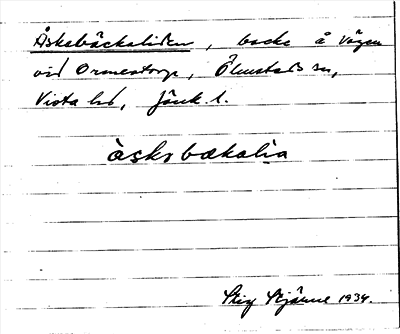 Åskebäckaliden, backe å vägen
vid Ormestorp, Ölmstads sn,
Vista hd, Jönk. l.
åskobækalia
Stig Stjärne 1934.